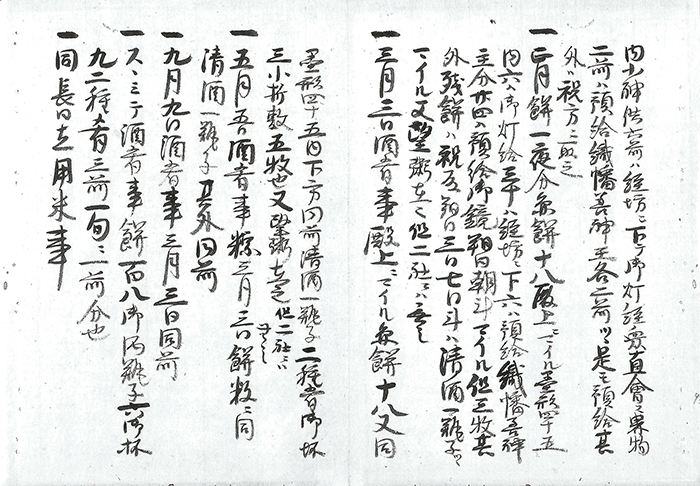 内小神供六前ハ経坊ニ下ス御灯経衆直會ニ菓物
二前ハ預給織幡吾神主各二前ツヽ是ヲ預給其
外ハ祝方ニ取之
一正月餅一夜分魚餅十八殿上ニマイル畳形四十五
内六ハ御灯給三十ハ経坊ニ下六ハ預給織幡吾神
主分廿四ハ預給御鏡朔日朝斗マイル但三枚其
外残餅ハ祝方朔日三日七日斗ハ清酒一瓶子ヲ
マイル又堅粥在之但二社ニハ無之
一三月三日酒肴事殿上ニマイル魚餅十八又同
畳形四十五内下ニ方四前清酒一瓶子二種肴御坏
三小折敷五枚也又堅粥在之但二社ニハ無之
一五月五日酒肴事粽三月三日餅数ニ同
清酒一瓶子其外同前
一九月九日酒肴事三月三日同前
一スヽミテ酒肴事餅一百八御酒瓶子一御坏
九二種肴三前一旬ニ一前分也
一同長日立用米事